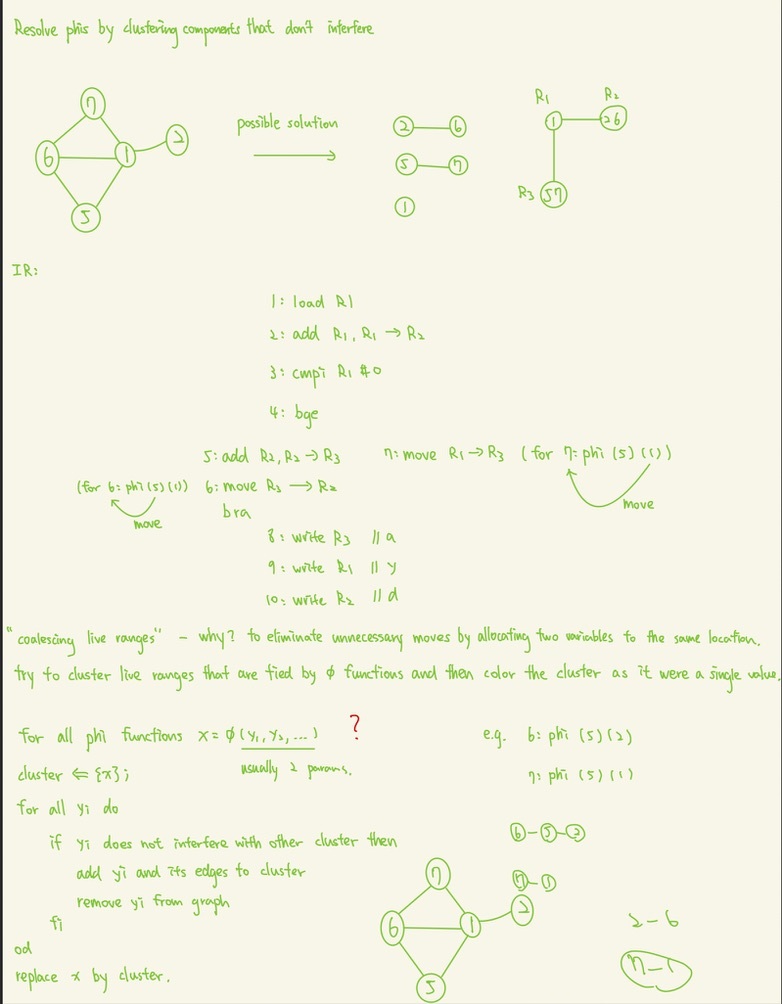 Resolve phis by clustering components that don't interfere
7
6 1 2
5
possible solution
2 6
5 7
1
R1 R2
1 26
R3 57
IR:
1: load R1
2: add R1, R1 → R2
3: cmpi R1 #0
4: bge
5: add R2, R2 → R3
7: move R1 → R3 (for 7: phi (5) (1))
move
(for 6: phi (5) (1)) 6: move R3 → R2
move
bra
8: write R3 //a
9: write R1 //y
10: write R2 //d
"coalescing live ranges" - why? to eliminate unnecessary moves by allocating two variables to the same location.
try to cluster live ranges that are tied by ϕ functions and then color the cluster as it were a single value.
for all phi functions x = ϕ(y1, y2, ...) ?
usually 2 params.
cluster ⇐ {x};
for all yi do
if yi does not interfere with other cluster then
add yi and its edges to cluster
remove yi from graph
fi
od
replace x by cluster.
e.g. 6: phi (5) (2)
7: phi (5) (1)
6-5-2
7-1
7
6 1 2
5
2-6
7-1